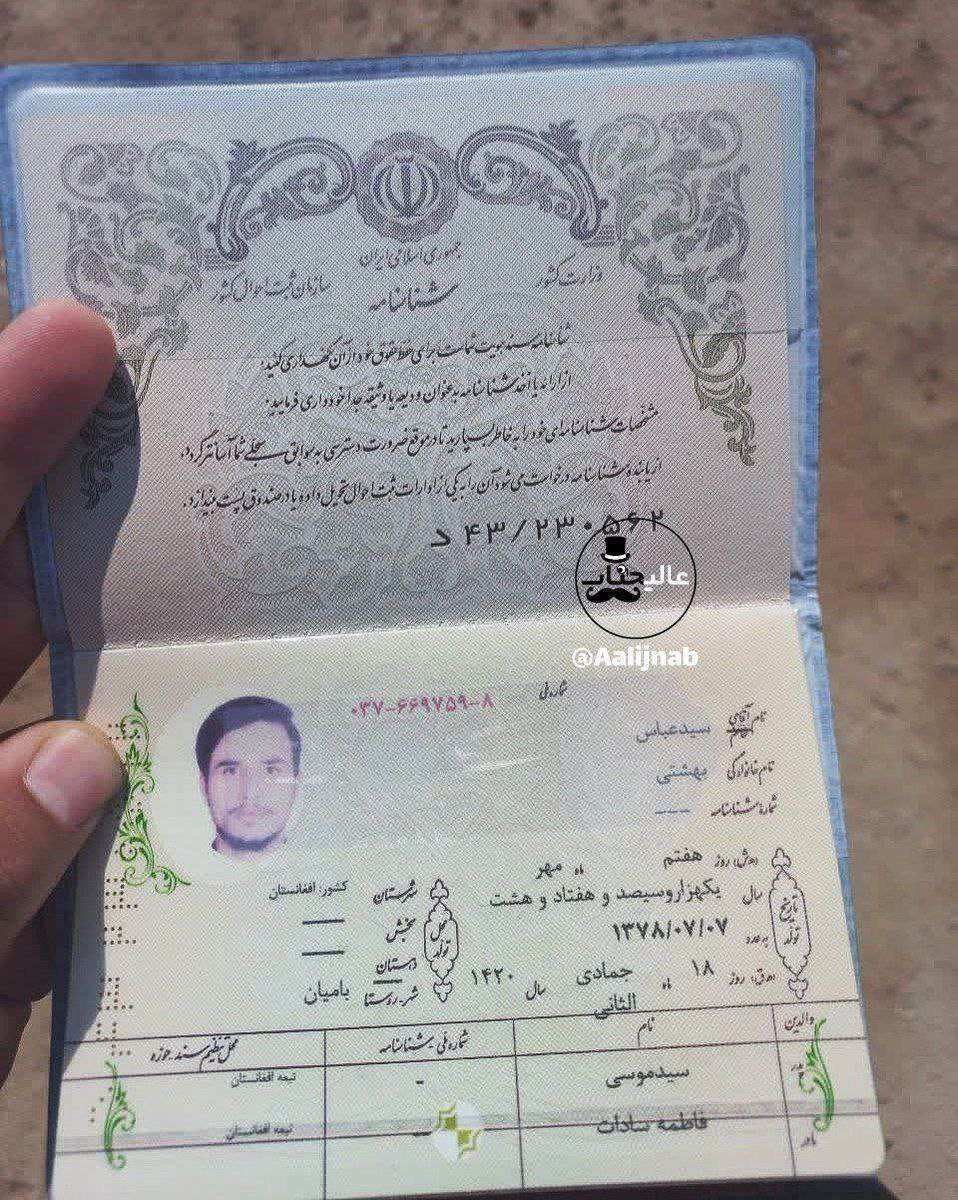 جمهوری اسلامی ایران
وزارت کشور
سازمان ثبت احوال کشور
شناسنامه
شناسنامه سند هویت شماست برای حفظ حقوق خود از آن نگهداری کنید.
از ارائه یا اخذ شناسنامه به عنوان ودیعه یا وثیقه جداً خودداری فرمایید.
مشخصات شناسنامه‌ای خود را به خاطر بسپارید تا در موقع ضرورت دسترسی به سوابق سجلی شما آسانتر گردد.
از یابنده شناسنامه درخواست می شود آن را به یکی از ادارات ثبت احوال تحویل داده یا در صندوق پست بیندازد.
د ۴۳/۲۳۰۵۶۲
عالیجناب
@Aalijnab
شماره ملی ۰۳۷-۶۶۹۷۵۹-۸
نام آقای سیدعباس
نام خانوادگی بهشتی
شماره شناسنامه ----
تاریخ تولد
(ه.ش) روز هفتم ماه مهر
سال یکهزاروسیصد و هفتاد و هشت
به عدد ۱۳۷۸/۰۷/۰۷
(ه.ق) روز ۱۸ ماه جمادی الثانی سال ۱۴۲۰
محل تولد
شهرستان کشور: افغانستان
بخش —
دهستان —
شهر-روستا بامیان
والدین نام شماره ملی-شناسنامه محل تنظیم سند-حوزه
پدر سیدموسی - تبعه افغانستان
مادر فاطمه سادات - تبعه افغانستان